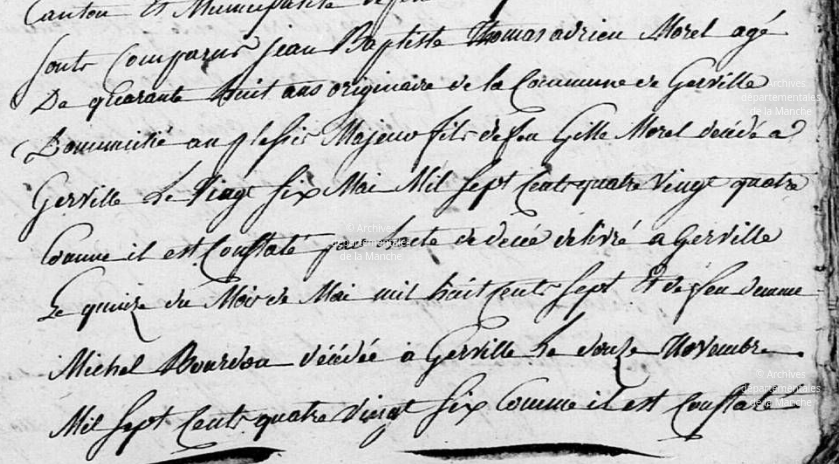 Canton et Municipalité de
sont Comparus jean Baptiste thomas adrien Morel agé
De quarante huit ans originaire de la Commune de Gerville
Domicilié au plessis Majeur fils de feu Gille Morel décédé a
Gerville Le Vingt Six Mai Mil Sept Cents quatre Vingt quatre
Comme il est Constaté par lacte de décée delivré a Gerville
Le quinze du Mois de Mai mil huit Cents Sept Et de feu
Michel Bourdon décédée a Gerville Le douze Novembre
Mil Sept Cents quatre Vingt Six Comme il est Constaté
© Archives
départementales
de la Manche
Archives
départementales
de la Manche
Archives
départementales
de la Manche